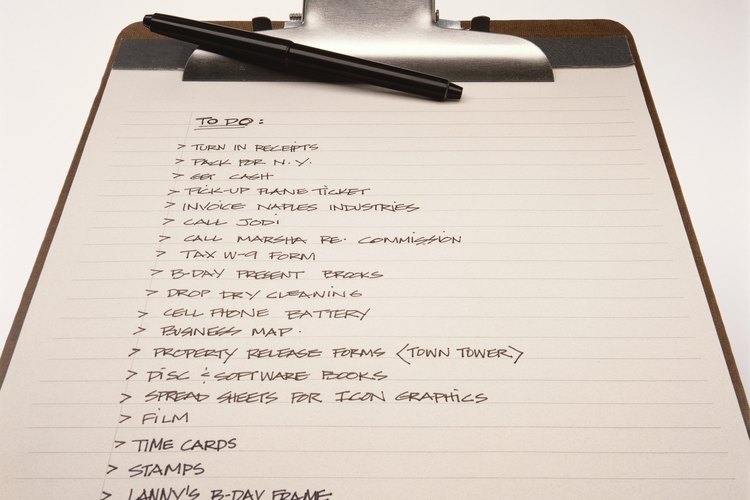 TO DO:
> TURN IN RECEIPTS
> PACK FOR N.Y.
> GET CASH
> PICK-UP PLANE TICKET
> INVOICE NAPLES INDUSTRIES
> CALL JODI
> CALL MARSHA RE. COMMISSION
> TAX W-9 FORM
> B-DAY PRESENT BROOKS
> DROP DRY CLEANING
> CELL PHONE BATTERY
> BUSINESS MAP.
> PROPERTY RELEASE FORMS <TOWN TOWER>
> DISC & SOFTWARE BOOKS
> SPREAD SHEETS FOR ICON GRAPHICS
> FILM
> TIME CARDS
> STAMPS
> LANNY'S B-DAY FRAME